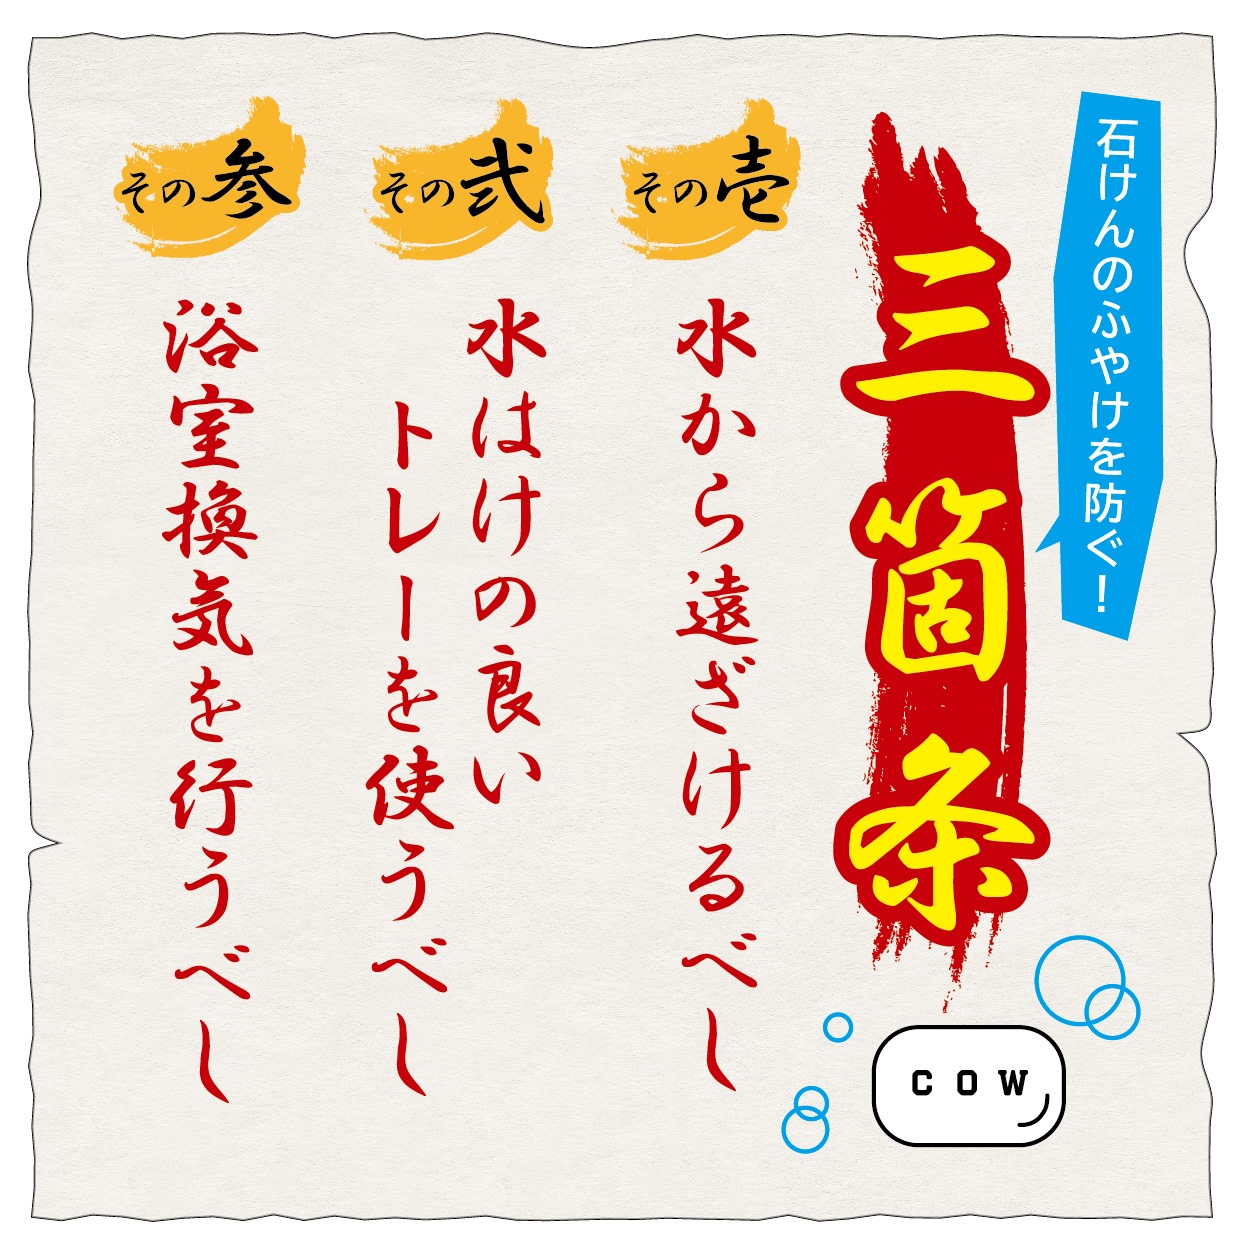 石けんのふやけを防ぐ!
三箇条
その壱
水から遠ざけるべし
その弐
水はけの良い
トレーを使うべし
その参
浴室換気を行うべし
COW